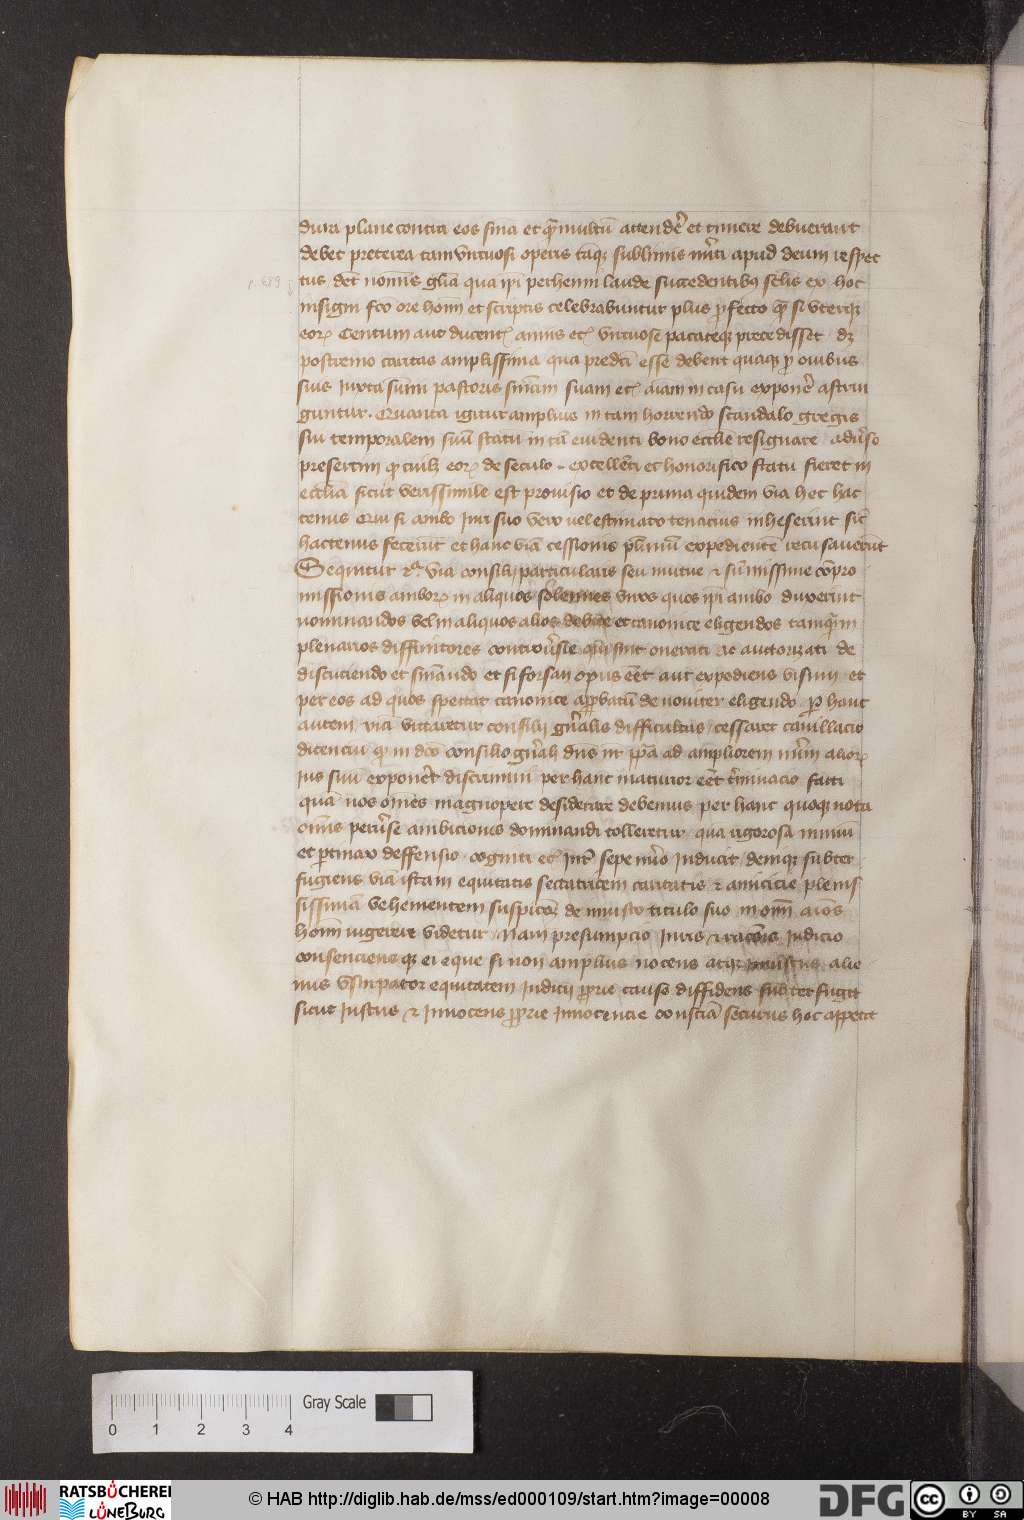 dura plane contra eos sn̄ia et qͣmultū attendēe et timere debuerant
debet preterea tam v̄tuosi operis tāqꝫ sublimis mr̄ti apud deum respec
tus det nominis glīa qua ip̄i perhenni laude succedentibꝫ sclīs ex hoc
insigni fc̄o ore hom̄ et scriptis celebrabuntur plus ꝓfecto qͣ si vterqꝫ
eoꝝ Centum aut ducentꝭ annis etc̄ v̄tuose pacateqꝫ precedisset dꝫ
postremo caritas amplissima qua predc̄i esse debent quaqꝫ ꝓ ouibus
suis Juxta sum̄i pastoris sn̄iam suam etc̄ aīam in casu exponēe astrin
guntur. Quanta igitur amplius in tam horrendo scandalo gregis
sui temporalem suū statū in tā euidenti bono eccl̄ie resignare adūso
presertim qꝫ cuilꝫ eoꝝ de seculo excellēti et honorifico statu fieret in
eccl̄ia sicut verissimile est prouisio et de prima quidem via hec hac
tenus Qui si ambo Juri suo vero vel estimato tenacius inheserint sic̄
hactenus fecerūt et hanc viā cessionis pl̄imū expedientē recusauerūt
Sequitur 2ᵃ via consilij particularis seu mutue ⁊ firmissime cōpro
missionis amboꝝ in aliquos solennes viros quos ip̄i ambo duxerint
nominandos vel in aliquos alios debite et canonice eligendos tamqͣm
plenarios diffinitores controūsie qui sint onerati ac auctorizati de
discuciendo et sn̄iando et si forsan opus eēt aut expediens visum et
per eos ad quos spectat canonice apꝓbatū de nouiter eligendo Per hanc
autem via vitaretur consilij gn̄alis difficultas cessaret cauillacio
dicencium qꝫ in dc̄o consilio gn̄ali dn̄s nr̄ pp̄a ad ampliorem nūm alioꝝ
Jus suū exponēet discrimini per hanc maturior eēt t̄minacio facti
quā nos om̄es magnopere desiderare debemus per hanc quoqꝫ nota
om̄is perūse ambicionis dominandi tolleretur qua rigorosa nimiū
et ꝑtinax deffensio cogniti etc̄ Jur̄ sepe mīo Inducit deniqꝫ subter
fugiens viā istam equitatis sectatricem caritatis ⁊ amicicie plenis
sissimā vehementem suspicōeꝫ de iniusto titulo suo in om̄ aīos
hom̄ ingerere videtur Nam presumpcio Juris ⁊ rac̄onis Judicio
consenciens qꝫ ei eque si non amplius nocens atqꝫ iniustus alie
nus v̄surpator equitatem Judicij ꝓprie cause diffidens subterfugit
sicut Justus ⁊ Innocens ꝓprie Innocencie consciā securus hoc appetit
0 1 2 3 4
Gray Scale
RATSBÜCHEREI
LÜNEBURG
© HAB http://diglib.hab.de/mss/ed000109/start.htm?image=00008
DFG
cc
BY SA